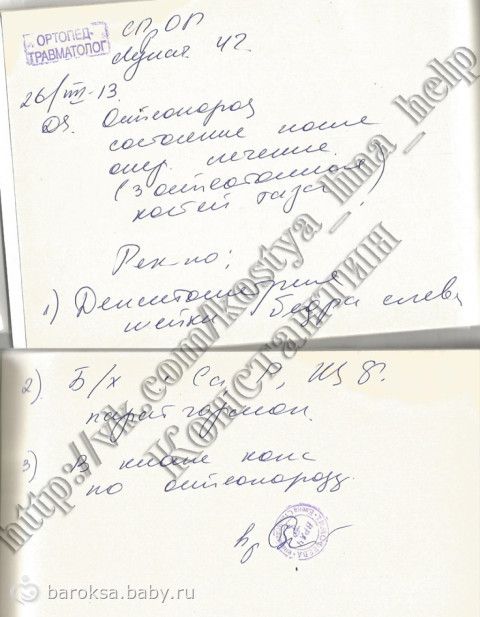 ОРТОПЕД-
ТРАВМАТОЛОГ
26/III-13
DS. Остеопороз
состояние после
опер. лечение
(3 остеотомия
костей таза)
Рек-но:
1) Денситометрия
шейки бедра слева
2) Б/х Ca, P, ЩФ.
парат гормон.
3) В
по остеопорозу
http://vk.com/kostya_ima_help
КОНСТАНТИН
baroksa.baby.ru